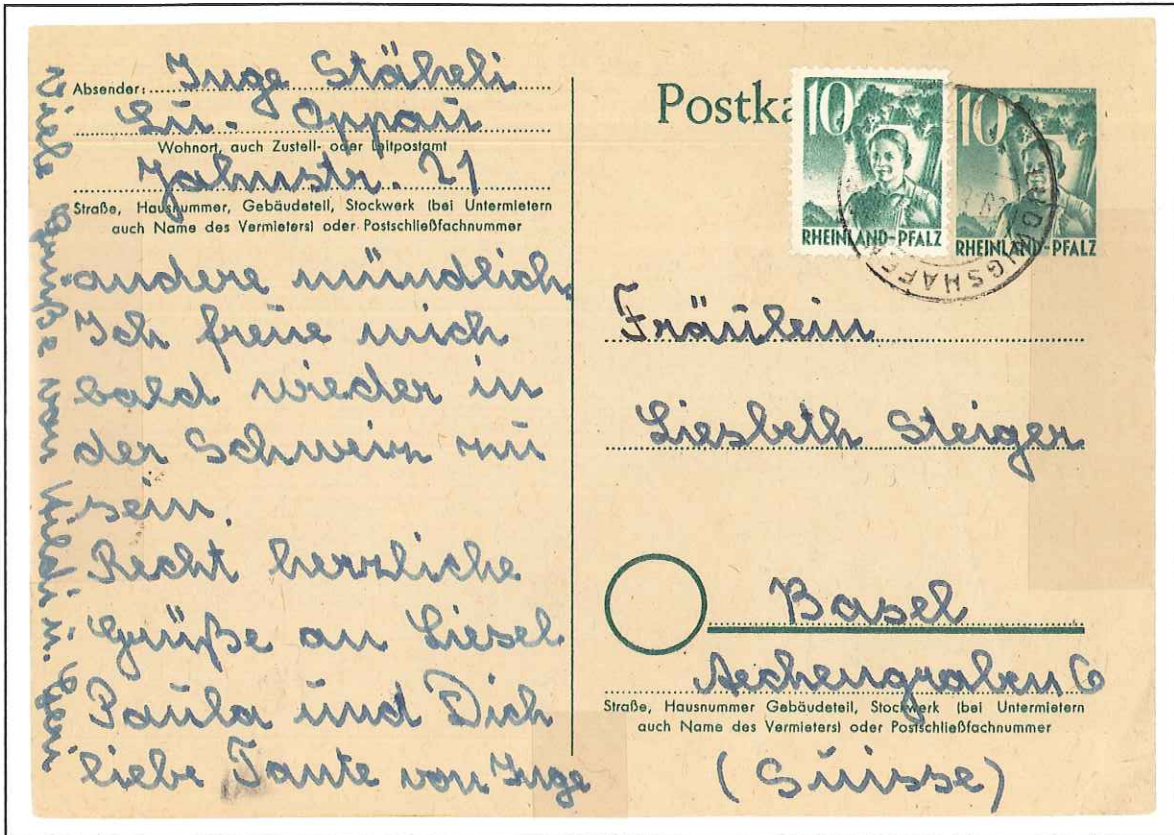 Absender: Inge Stäheli
Lu- Oppau
Wohnort, auch Zustell- oder Leitpostamt
Jahnstr. 21
Straße, Hausnummer, Gebäudeteil, Stockwerk (bei Untermietern
auch Name des Vermieters) oder Postschließfachnummer
andere mündlich.
Ich freue mich
bald wieder in
der Schweiz zu
sein.
Recht herzliche
Grüße an Liesel
Paula und Dich
liebe Tante von Inge
Viele Grüße von Hildi u.
Postka
10
RHEINLAND-PFALZ
10
RHEINLAND-PFALZ
LUDWIGSHAFEN
Fräulein
Liesbeth Steiger
Basel
Aechengraben 6
Straße, Hausnummer Gebäudeteil, Stockwerk (bei Untermietern
auch Name des Vermieters) oder Postschließfachnummer
(Suisse)